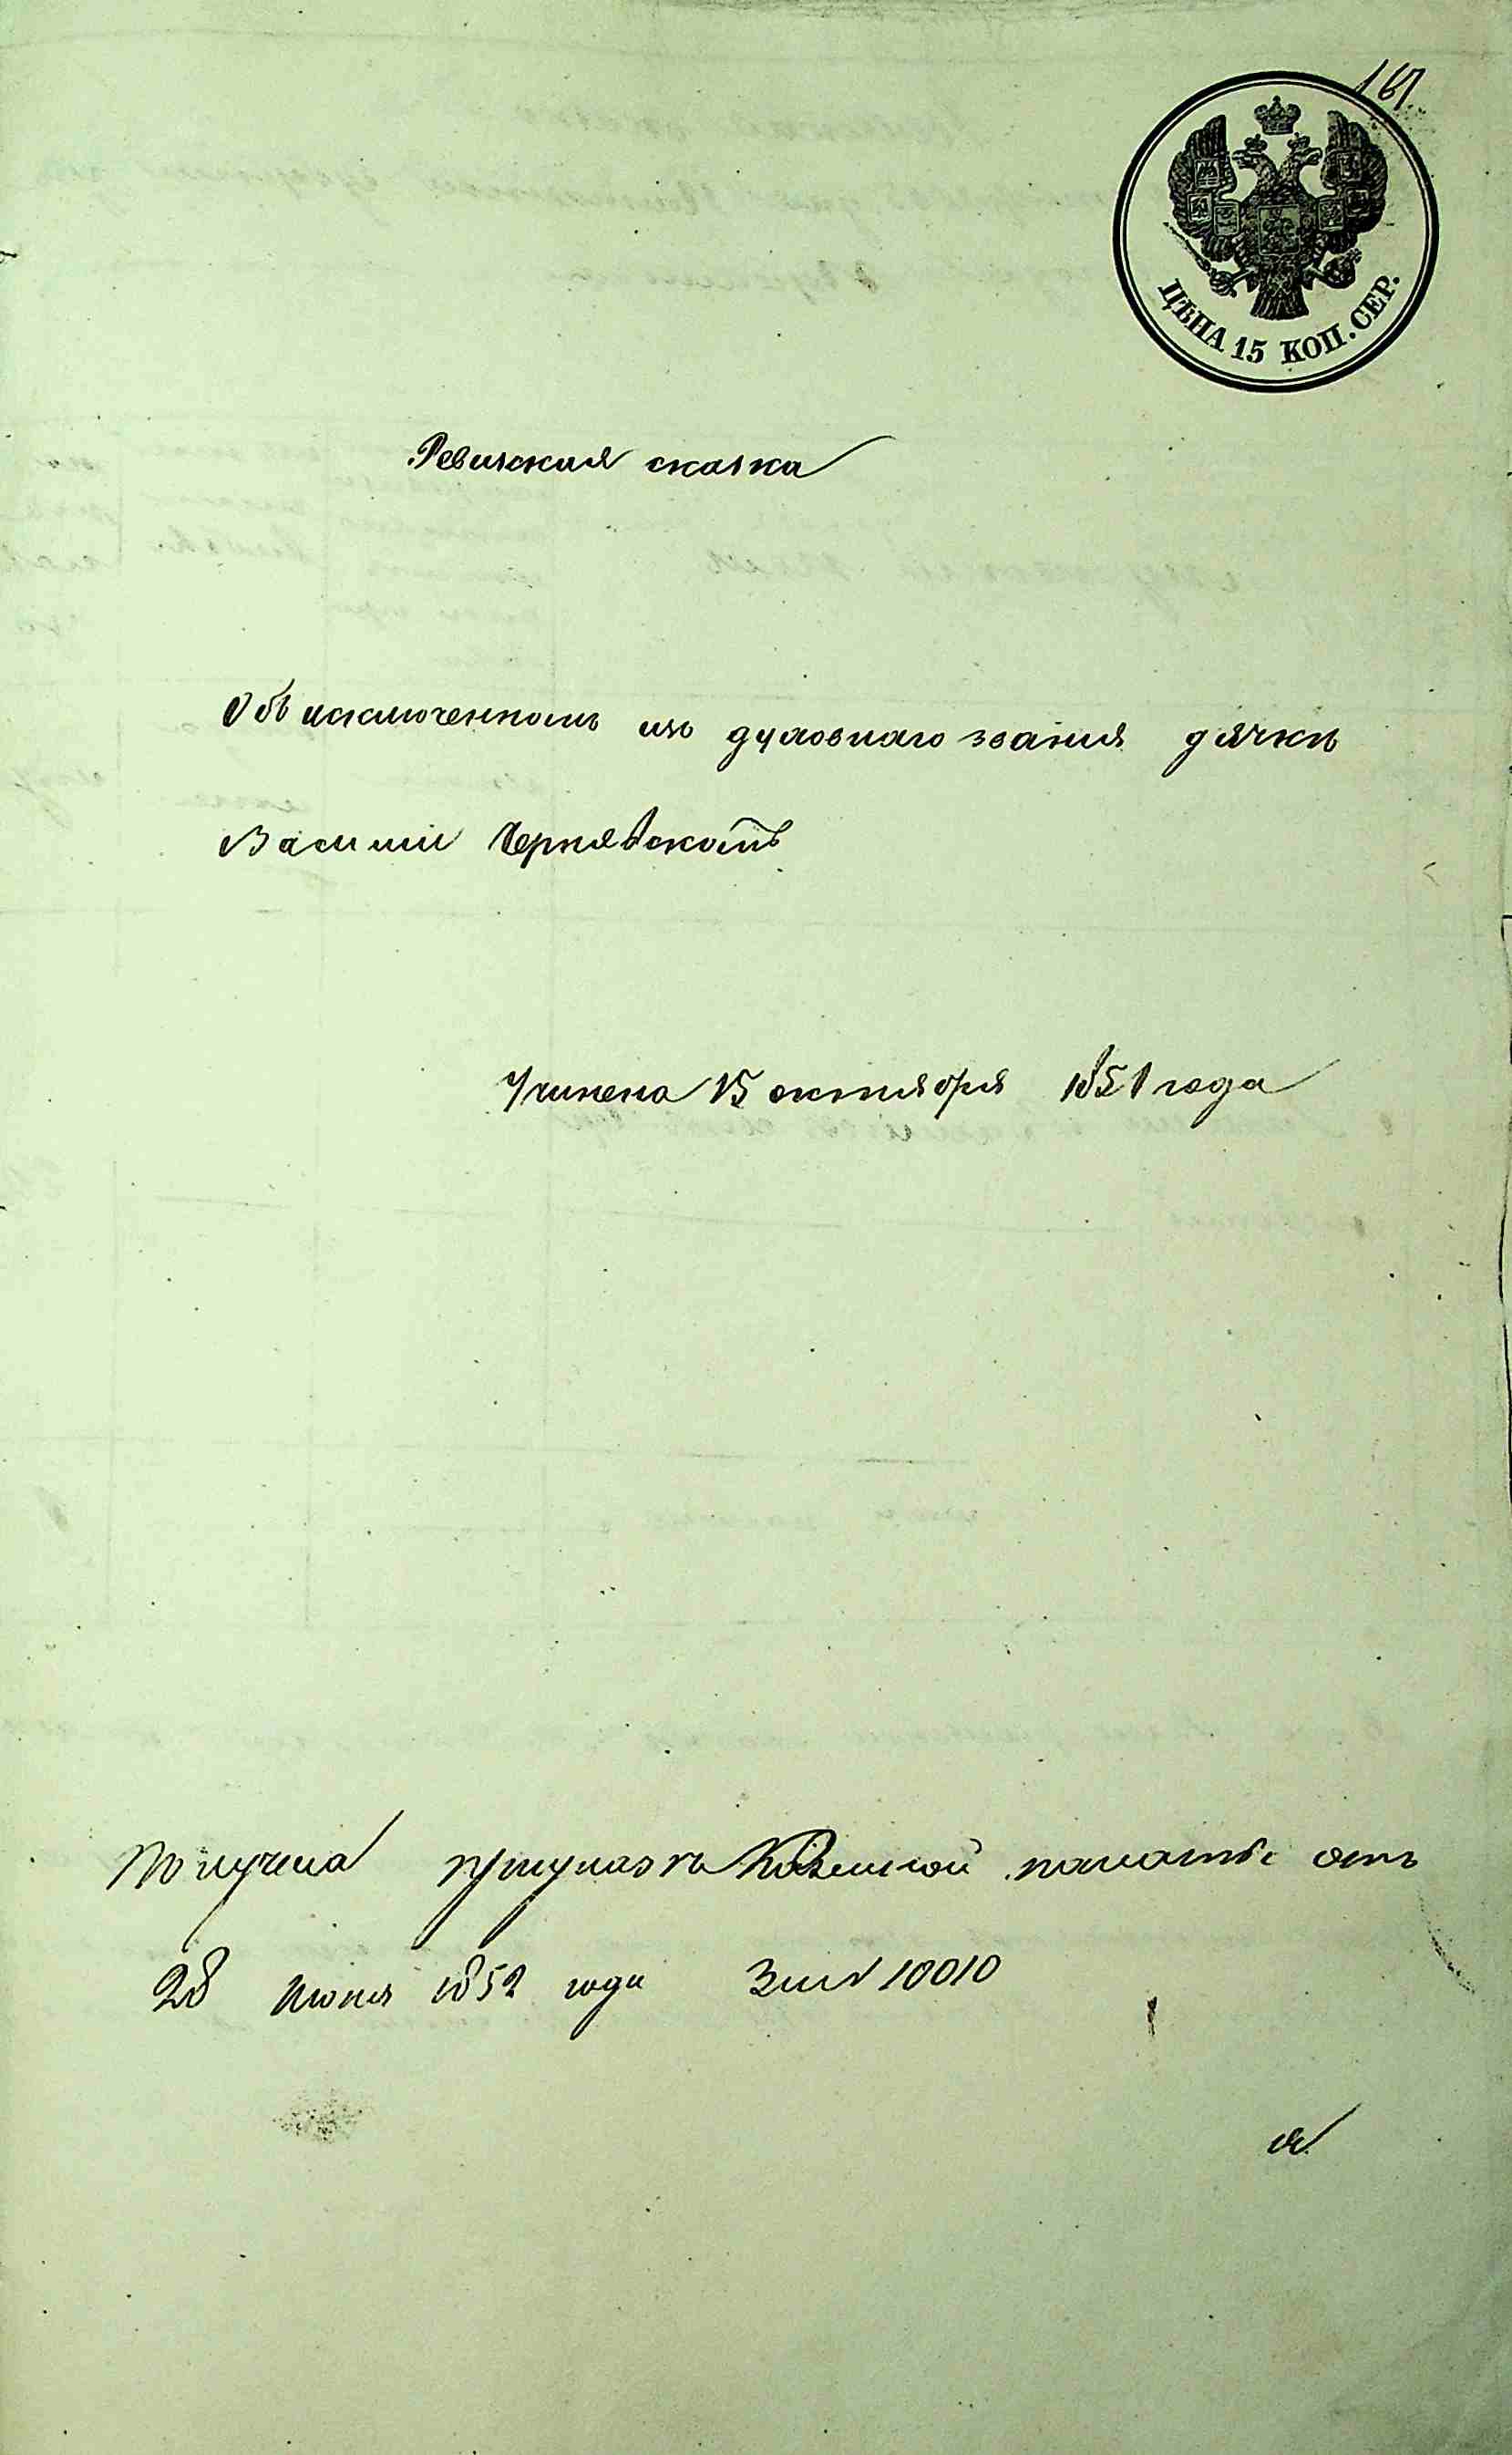 167.
ЦѢНА 15 КОП. СЕР.
Ревизская сказка
Объ исключенномъ изъ духовнаго званія дячкѣ
Василіи Чернявскомъ
Учинена 15 октября 1851 года
Получена при указѣ Казенной палаты отъ
28 Июня 1852 года За № 10010